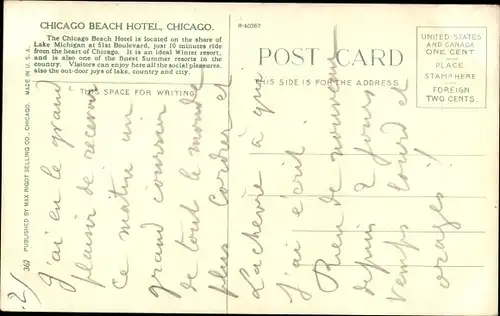 CHICAGO BEACH HOTEL, CHICAGO.
The Chicago Beach Hotel is located on the shore of
Lake Michigan at 51st Boulevard, just 10 minutes ride
from the heart of Chicago. It is an ideal Winter resort,
and is also one of the finest Summer resorts in the
country. Visitors can enjoy here all the social pleasures,
also the out-door joys of lake, country and city.
THIS SPACE FOR WRITING
R-40367
POST CARD
THIS SIDE IS FOR THE ADDRESS
UNITED STATES
AND CANADA
ONE CENT
PLACE
STAMP HERE
FOREIGN
TWO CENTS.
367 PUBLISHED BY MAX RIGOT SELLING CO., CHICAGO. MADE IN U. S. A.
2/
J'ai eu le grand
plaisir de recevoir
ce matin un
grand courrier
de tout le monde
plus Cordier et
Lachèvre à qui
j'ai écrit.
Rien de nouveau
depuis 2 jours
temps lourd et
orages!